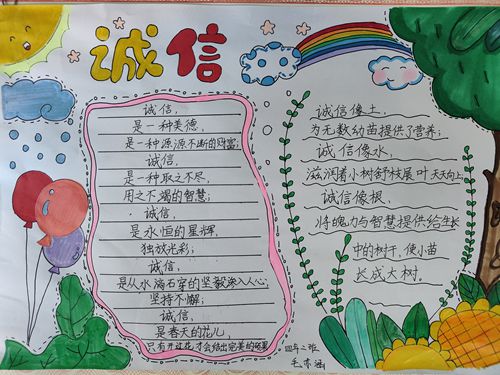 诚信
诚信，
是一种美德，
是一种源源不断的财富；
诚信，
是一种取之不尽，
用之不竭的智慧；
诚信，
是永恒的星辉，
独放光彩；
诚信，
是从水滴石穿的坚毅深入人心；
坚持不懈；
诚信，
是春天的花儿，
只有开过花，才会结出完美的硕果
诚信像土，
为无数幼苗提供了营养；
诚信像水，
滋润着小树舒枝展叶天天向上；
诚信像根，
将魄力与智慧提供给生长
中的树干，使小苗
长成大树。
四年二班